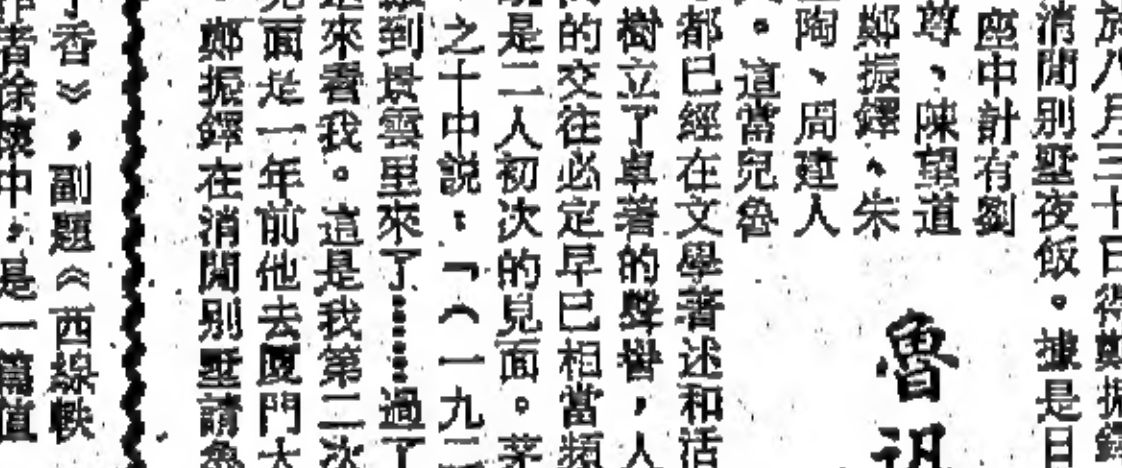 於八月三十日得鄭振鐸
消閒别墅夜飯。據是日
座中計有劉
尊、陳望道
鄭振鐸、朱
陶、周建人
。這當兒魯
都已經在文學著述和活
樹立了卓著的聲譽，人
的交往必定早已相當頻
是二人初次的見面。茅
之十中説：「（一九二
到景雲里來了……過了
來看我。這是我第二次
面是一年前他去厦門大
鄭振鐸在消閒别墅請魯
魯迅
香》，副題《西線軼
作者徐懷中，是一篇值